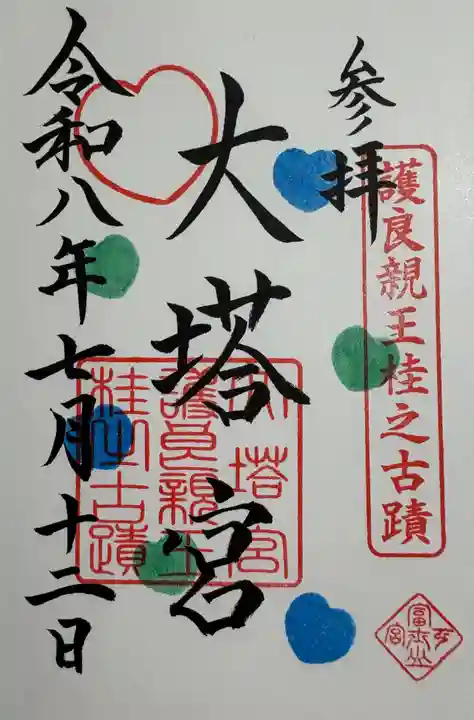 参拝
護良親王桂之古蹟
大塔宮
大塔宮
護良親王
桂之古蹟
令和八年七月十二日